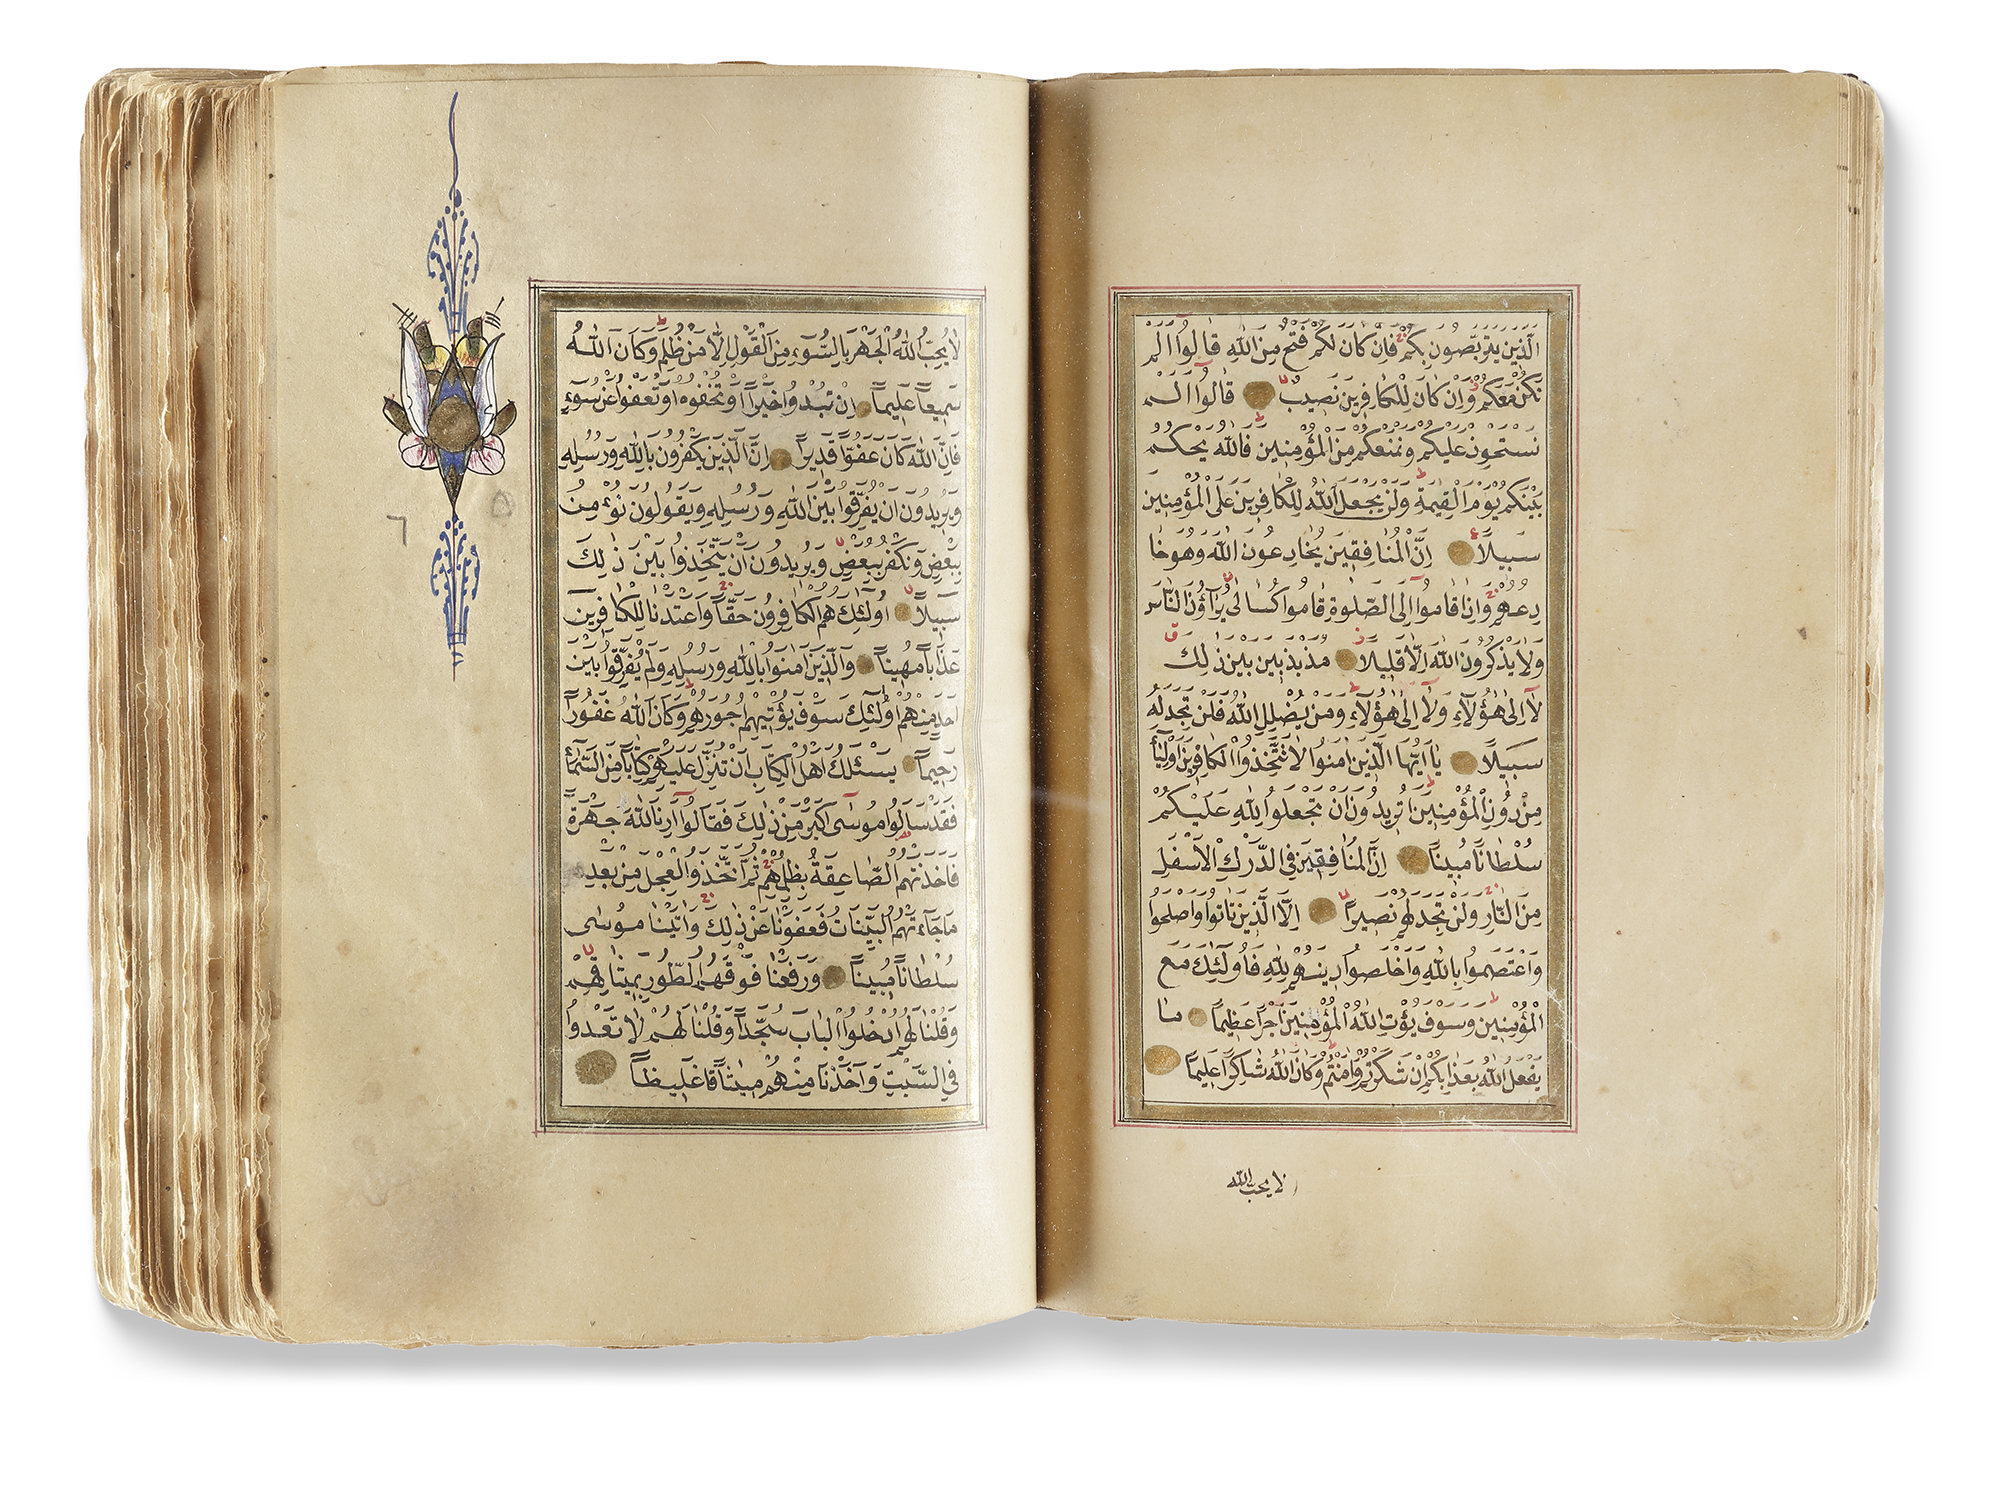 اَلَّذِينَ يَتَرَبَّصُونَ بِكُمْ فَاِنْ كَانَ لَكُمْ فَتْحٌ مِنَ اللّٰهِ قَالُوا اَلَمْ
نَكُنْ مَعَكُمْ وَاِنْ كَانَ لِلْكَافِرِينَ نَصِيبٌ قَالُوا اَلَمْ
نَسْتَحْوِذْ عَلَيْكُمْ وَنَمْنَعْكُمْ مِنَ الْمُؤْمِنِينَ فَاللّٰهُ يَحْكُمُ
بَيْنَكُمْ يَوْمَ الْقِيٰمَةِ وَلَنْ يَجْعَلَ اللّٰهُ لِلْكَافِرِينَ عَلَى الْمُؤْمِنِينَ
سَبِيلاً اِنَّ الْمُنَافِقِينَ يُخَادِعُونَ اللّٰهَ وَهُوَ خَا
دِعُهُمْ وَاِذَا قَامُوا اِلَى الصَّلٰوةِ قَامُوا كُسَالٰى يُرَاؤُنَ النَّاسَ
وَلَا يَذْكُرُونَ اللّٰهَ اِلَّا قَلِيلاً مُذَبْذَبِينَ بَيْنَ ذٰلِكَ
لَا اِلٰى هٰؤُلَاءِ وَلَا اِلٰى هٰؤُلَاءِ وَمَنْ يُضْلِلِ اللّٰهُ فَلَنْ تَجِدَ لَهُ
سَبِيلاً يَا اَيُّهَا الَّذِينَ اٰمَنُوا لَا تَتَّخِذُوا الْكَافِرِينَ اَوْلِيَاءَ
مِنْ دُونِ الْمُؤْمِنِينَ اَتُرِيدُونَ اَنْ تَجْعَلُوا لِلّٰهِ عَلَيْكُمْ
سُلْطَانًا مُبِينًا اِنَّ الْمُنَافِقِينَ فِي الدَّرْكِ الْاَسْفَلِ
مِنَ النَّارِ وَلَنْ تَجِدَ لَهُمْ نَصِيرًا اِلَّا الَّذِينَ تَابُوا وَاَصْلَحُوا
وَاعْتَصَمُوا بِاللّٰهِ وَاَخْلَصُوا دِينَهُمْ لِلّٰهِ فَاُولٰئِكَ مَعَ
الْمُؤْمِنِينَ وَسَوْفَ يُؤْتِ اللّٰهُ الْمُؤْمِنِينَ اَجْرًا عَظِيمًا مَا
يَفْعَلُ اللّٰهُ بِعَذَابِكُمْ اِنْ شَكَرْتُمْ وَاٰمَنْتُمْ وَكَانَ اللّٰهُ شَاكِرًا عَلِيمًا
لا يحب الله
لَا يُحِبُّ اللّٰهُ الْجَهْرَ بِالسُّوءِ مِنَ الْقَوْلِ اِلَّا مَنْ ظُلِمَ وَكَانَ اللّٰهُ
سَمِيعًا عَلِيمًا اِنْ تُبْدُوا خَيْرًا اَوْ تُخْفُوهُ اَوْ تَعْفُوا عَنْ سُوءٍ
فَاِنَّ اللّٰهَ كَانَ عَفُوًّا قَدِيرًا اِنَّ الَّذِينَ يَكْفُرُونَ بِاللّٰهِ وَرُسُلِهِ
وَيُرِيدُونَ اَنْ يُفَرِّقُوا بَيْنَ اللّٰهِ وَرُسُلِهِ وَيَقُولُونَ نُؤْمِنُ
بِبَعْضٍ وَنَكْفُرُ بِبَعْضٍ وَيُرِيدُونَ اَنْ يَتَّخِذُوا بَيْنَ ذٰلِكَ
سَبِيلاً اُولٰئِكَ هُمُ الْكَافِرُونَ حَقًّا وَاَعْتَدْنَا لِلْكَافِرِينَ
عَذَابًا مُهِينًا وَالَّذِينَ اٰمَنُوا بِاللّٰهِ وَرُسُلِهِ وَلَمْ يُفَرِّقُوا بَيْنَ
اَحَدٍ مِنْهُمْ اُولٰئِكَ سَوْفَ يُؤْتِيهِمْ اُجُورَهُمْ وَكَانَ اللّٰهُ غَفُورًا
رَحِيمًا يَسْئَلُكَ اَهْلُ الْكِتَابِ اَنْ تُنَزِّلَ عَلَيْهِمْ كِتَابًا مِنَ السَّمَاءِ
فَقَدْ سَاَلُوا مُوسٰى اَكْبَرَ مِنْ ذٰلِكَ فَقَالُوا اَرِنَا اللّٰهَ جَهْرَةً
فَاَخَذَتْهُمُ الصَّاعِقَةُ بِظُلْمِهِمْ ثُمَّ اتَّخَذُوا الْعِجْلَ مِنْ بَعْدِ
مَا جَاءَتْهُمُ الْبَيِّنَاتُ فَعَفَوْنَا عَنْ ذٰلِكَ وَاٰتَيْنَا مُوسٰى
سُلْطَانًا مُبِينًا وَرَفَعْنَا فَوْقَهُمُ الطُّورَ بِمِيثَاقِهِمْ
وَقُلْنَا لَهُمُ ادْخُلُوا الْبَابَ سُجَّدًا وَقُلْنَا لَهُمْ لَا تَعْدُوا
فِي السَّبْتِ وَاَخَذْنَا مِنْهُمْ مِيثَاقًا غَلِيظًا